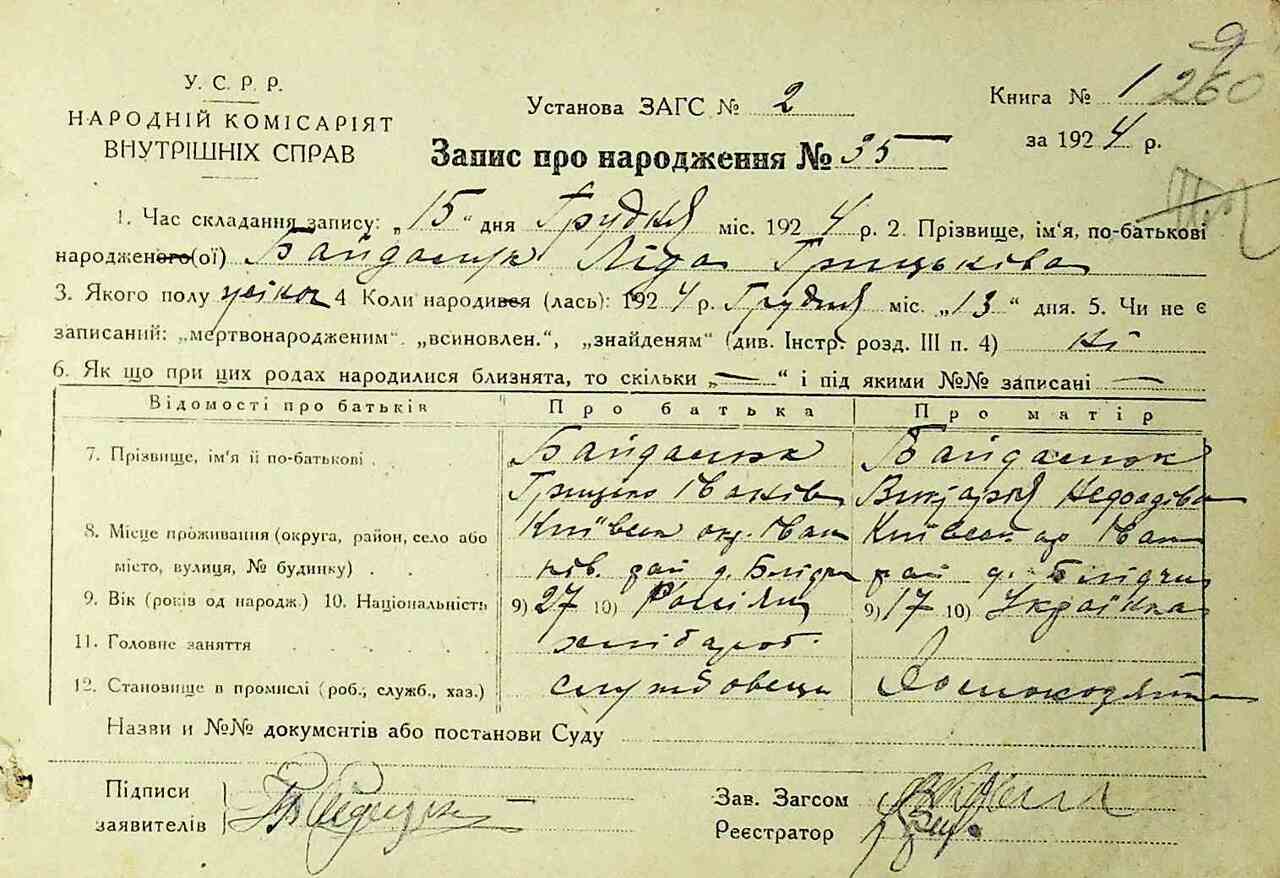 9
260
У. С. Р. Р.
НАРОДНІЙ КОМІСАРІЯТ
ВНУТРІШНІХ СПРАВ
Установа ЗАГС № 2
Книга № 1
за 1924 р.
Запис про народження № 35
1. Час складання запису: „15“ дня Грудня міс. 1924 р. 2. Прізвище, ім'я, по-батькові
народженого(ої) Байдалюк Ліда Грицькова
3. Якого полу жіноч 4 Коли народився (лась): 1924 р. Грудня міс. „13“ дня. 5. Чи не є
записаний: „мертвонародженим“. „всиновлен.“, „знайденям“ (див. Інстр. розд. III п. 4) ні
6. Як що при цих родах народилися близнята, то скільки „—“ і під якими №№ записані —
Відомості про батьків Про батька Про матір
7. Прізвище, ім'я її по-батькові . Байдалюк Байдалюк
Грицько Іванів
8. Місце проживання (округа, район, село або Київськ окр. Іван Київськ окр Іван
місто, вулиця, № будинку) . . ків. рай д. рай д.
9. Вік (років од народж.) 10. Національність 9) 27 10) 9) 17 10) Українка
11. Головне заняття . . . . . хлібороб.
12. Становище в промислі (роб., служб., хаз.) службовець
Назви и №№ документів або постанови Суду
Підписи
заявителів
Зав. Загсом
Реєстратор